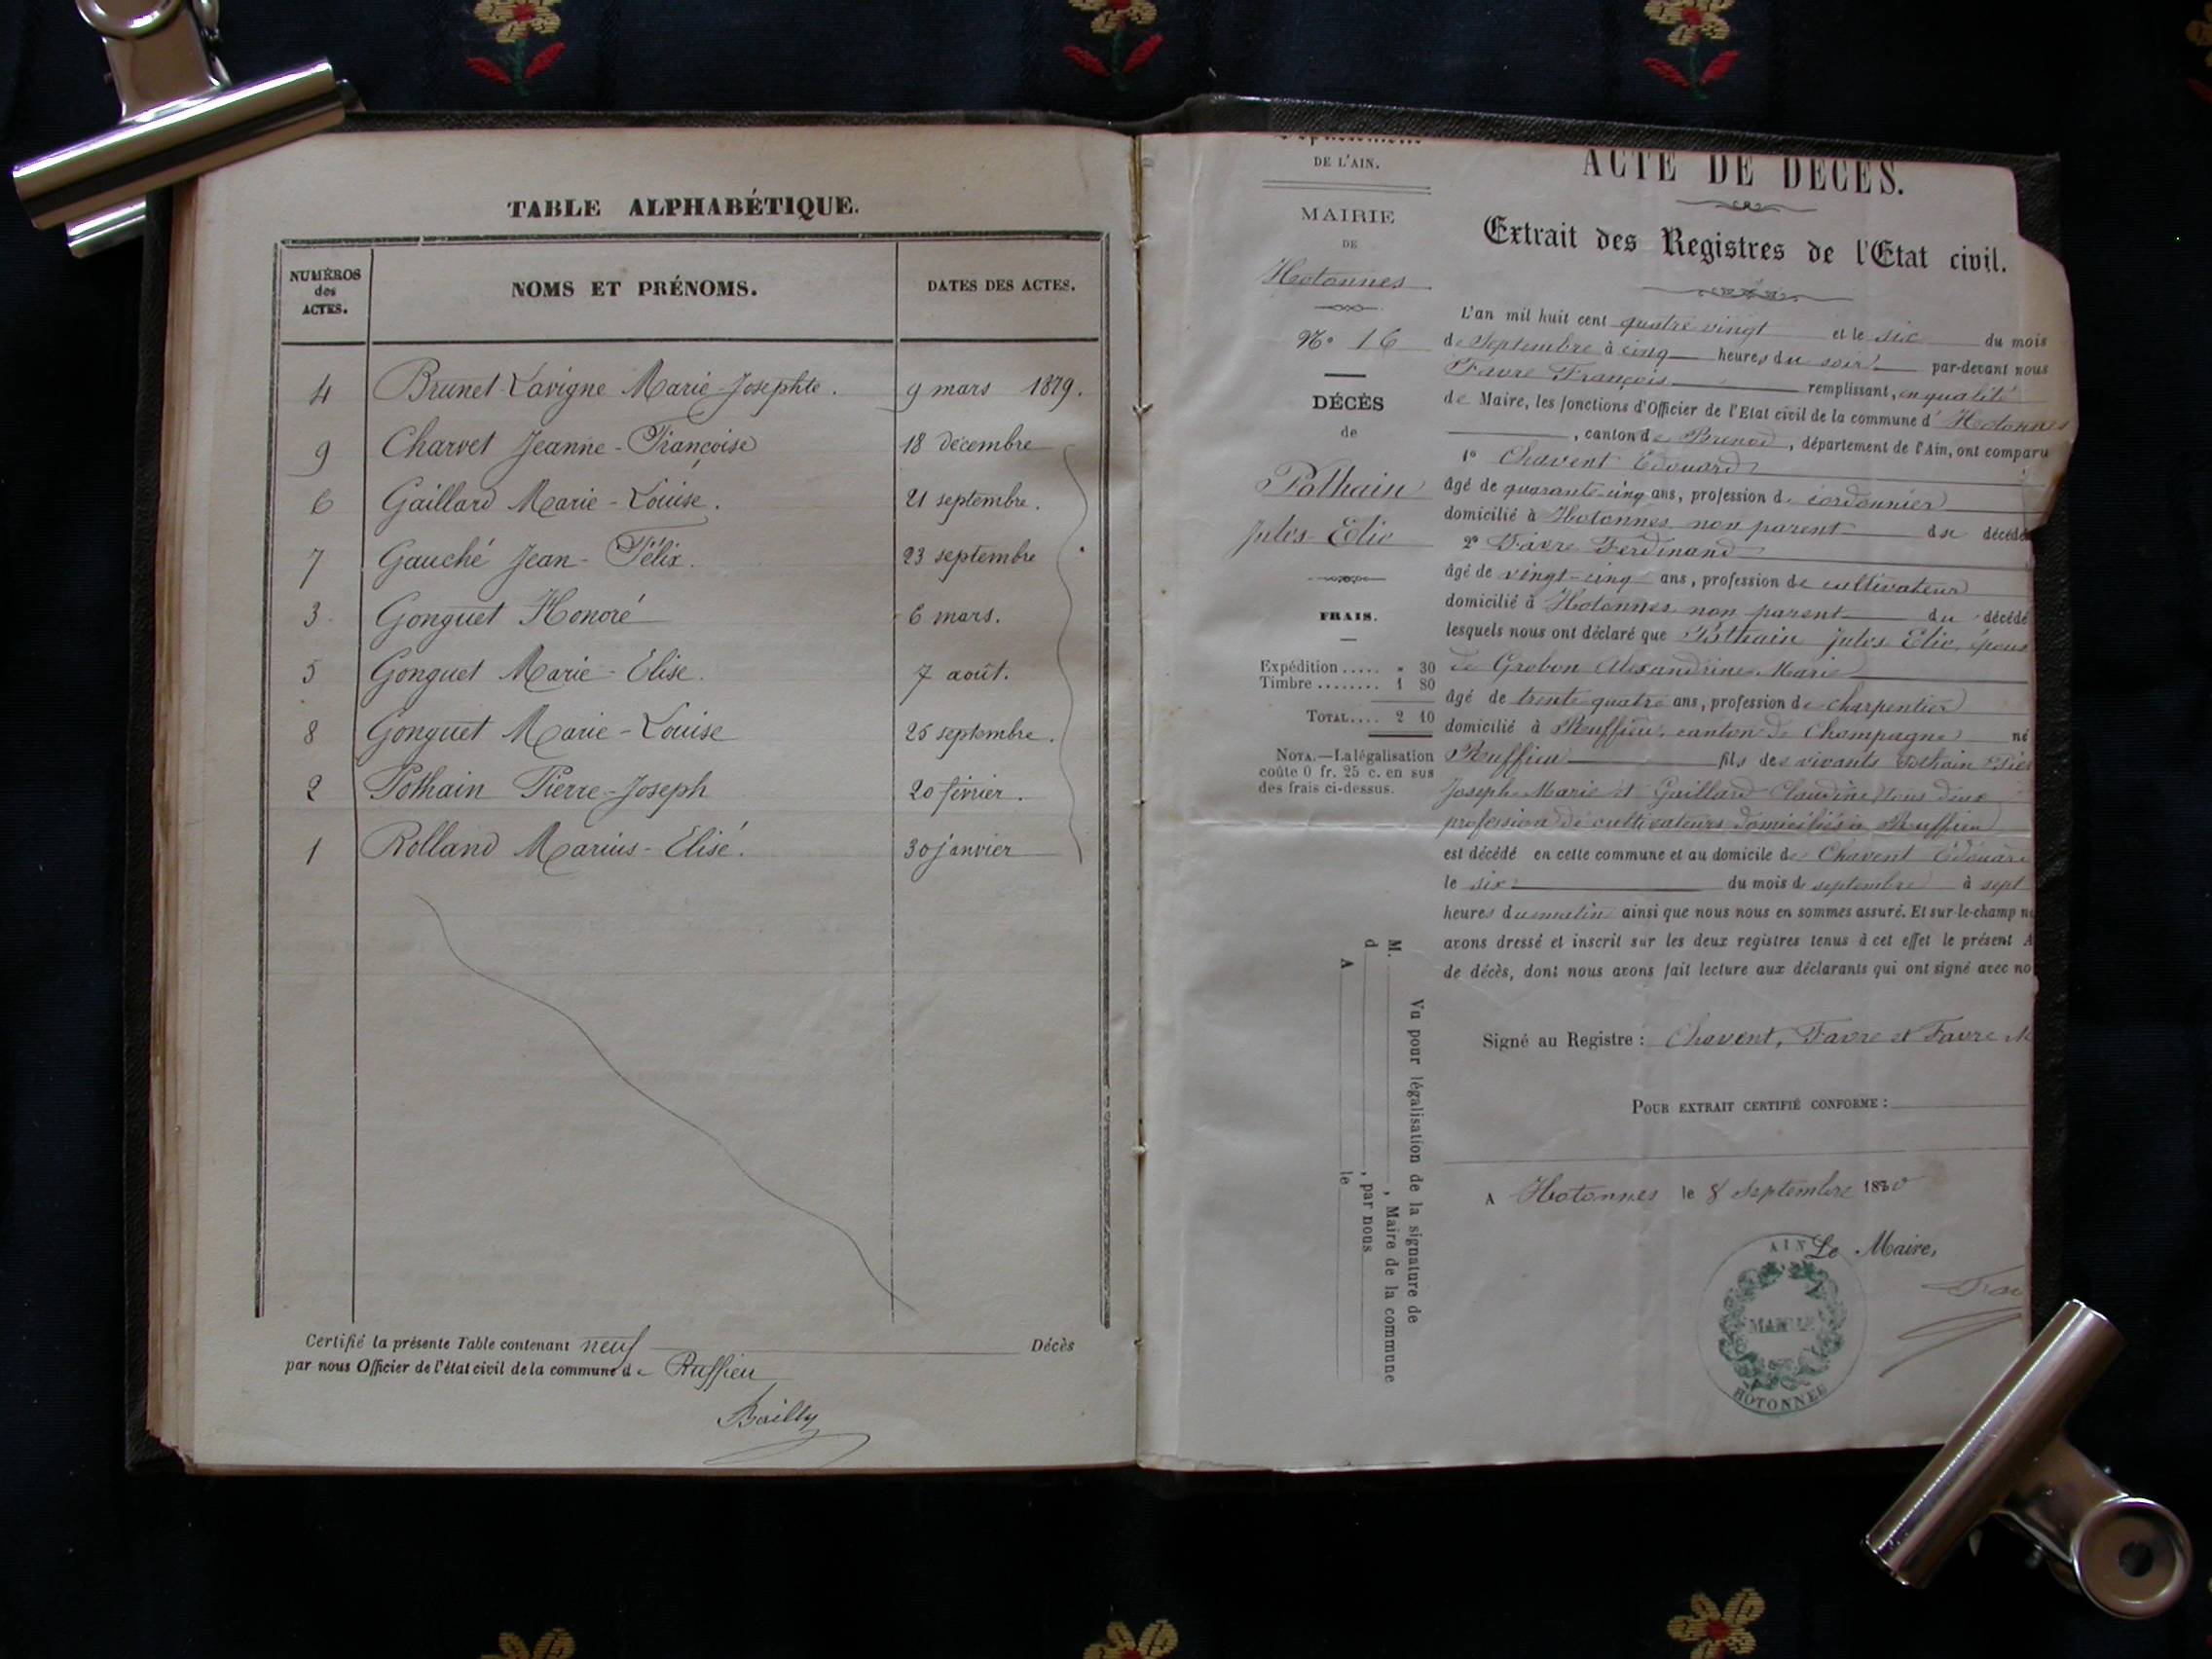 TABLE ALPHABÉTIQUE.
NUMÉROS des ACTES. NOMS ET PRÉNOMS. DATES DES ACTES.
4 Brunet-Lavigne Marie-Josephte. 9 mars 1879.
9 Charvet Jeanne-Françoise 18 décembre
6 Gaillard Marie-Louise. 21 septembre.
7 Gauché Jean-Félix. 23 septembre
3 Gonguet Honoré 6 mars.
5 Gonguet Marie-Elise. 7 août.
8 Gonguet Marie-Louise 25 septembre.
2 Pothain Pierre-Joseph 20 février.
1 Rolland Marius-Elisé. 30 janvier
Certifié la présente Table contenant neuf Décès
par nous Officier de l'état civil de la commune de Ruffieu
Bailly
DE L'AIN.
MAIRIE
DE
Hotonnes
N° 16
DÉCÈS
de
Pothain
Jules-Elie
FRAIS.
Expédition..... " 30
Timbre........ 1 80
TOTAL.... 2 10
NOTA.—La légalisation
coûte 0 fr. 25 c. en sus
des frais ci-dessus.
Vu pour légalisation de la signature de
M. , Maire de la commune
d , par nous
A le
ACTE DE DÉCÈS.
Extrait des Registres de l'Etat civil.
L'an mil huit cent quatre vingt et le six du mois
de Septembre à cinq heures du soir par-devant nous
Favre François remplissant, en qualité
de Maire, les fonctions d'Officier de l'Etat civil de la commune d'Hotonnes
, canton de Brenod, département de l'Ain, ont comparu
1° Chavent Edouard
âgé de quarante-cinq ans, profession de cordonnier
domicilié à Hotonnes non parent du décédé
2° Favre Ferdinand
âgé de vingt-cinq ans, profession de cultivateur
domicilié à Hotonnes non parent du décédé
lesquels nous ont déclaré que Pothain Jules-Elie, époux
de Grobon Alexandrine Marie
âgé de trente quatre ans, profession de charpentier
domicilié à Ruffieu, canton de Champagne né
Ruffieu fils des vivants Pothain
Joseph-Marie et Gaillard Claudine tous deux
profession de cultivateurs domiciliés à Ruffieu
est décédé en cette commune et au domicile de Chavent Edouard
le six du mois de septembre à sept
heures du matin ainsi que nous nous en sommes assuré. Et sur-le-champ n
avons dressé et inscrit sur les deux registres tenus à cet effet le présent A
de décès, dont nous avons fait lecture aux déclarants qui ont signé avec no
Signé au Registre : Chavent, Favre et Favre M
POUR EXTRAIT CERTIFIÉ CONFORME :
A Hotonnes le 8 Septembre 1880
Le Maire,
AIN
MAIRIE
HOTONNES